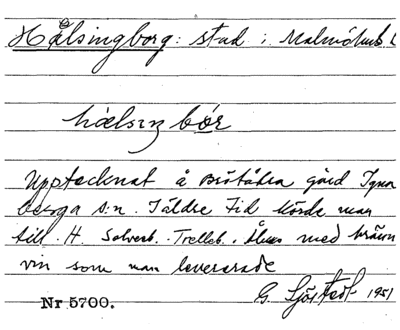 Hälsingborg: stad i Malmöhus l
hælsɪŋbɔr
Upptecknat å gård Igna
berga s:n. I äldre tid körde man
till H. Solvesb. Trelleb. Åhus med bränn
vin som man levererade
G. Sjöstedt 1951
Nr 5700.